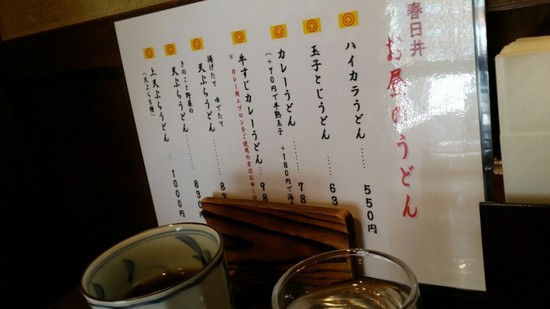 春日井
お昼のうどん
ハイカラうどん…… 550円
玉子とじうどん…… 63
カレーうどん…… 78
（+70円で半熟玉子 +180円で
牛すじカレーうどん… 98
※カレー用エプロンをご使用の方は
揚げたて ゆでたて
天ぷらうどん…… 8
きのこと野菜の
天ぷらうどん…… 830円
上天ぷらうどん… 1000円
（天ぷら5種）